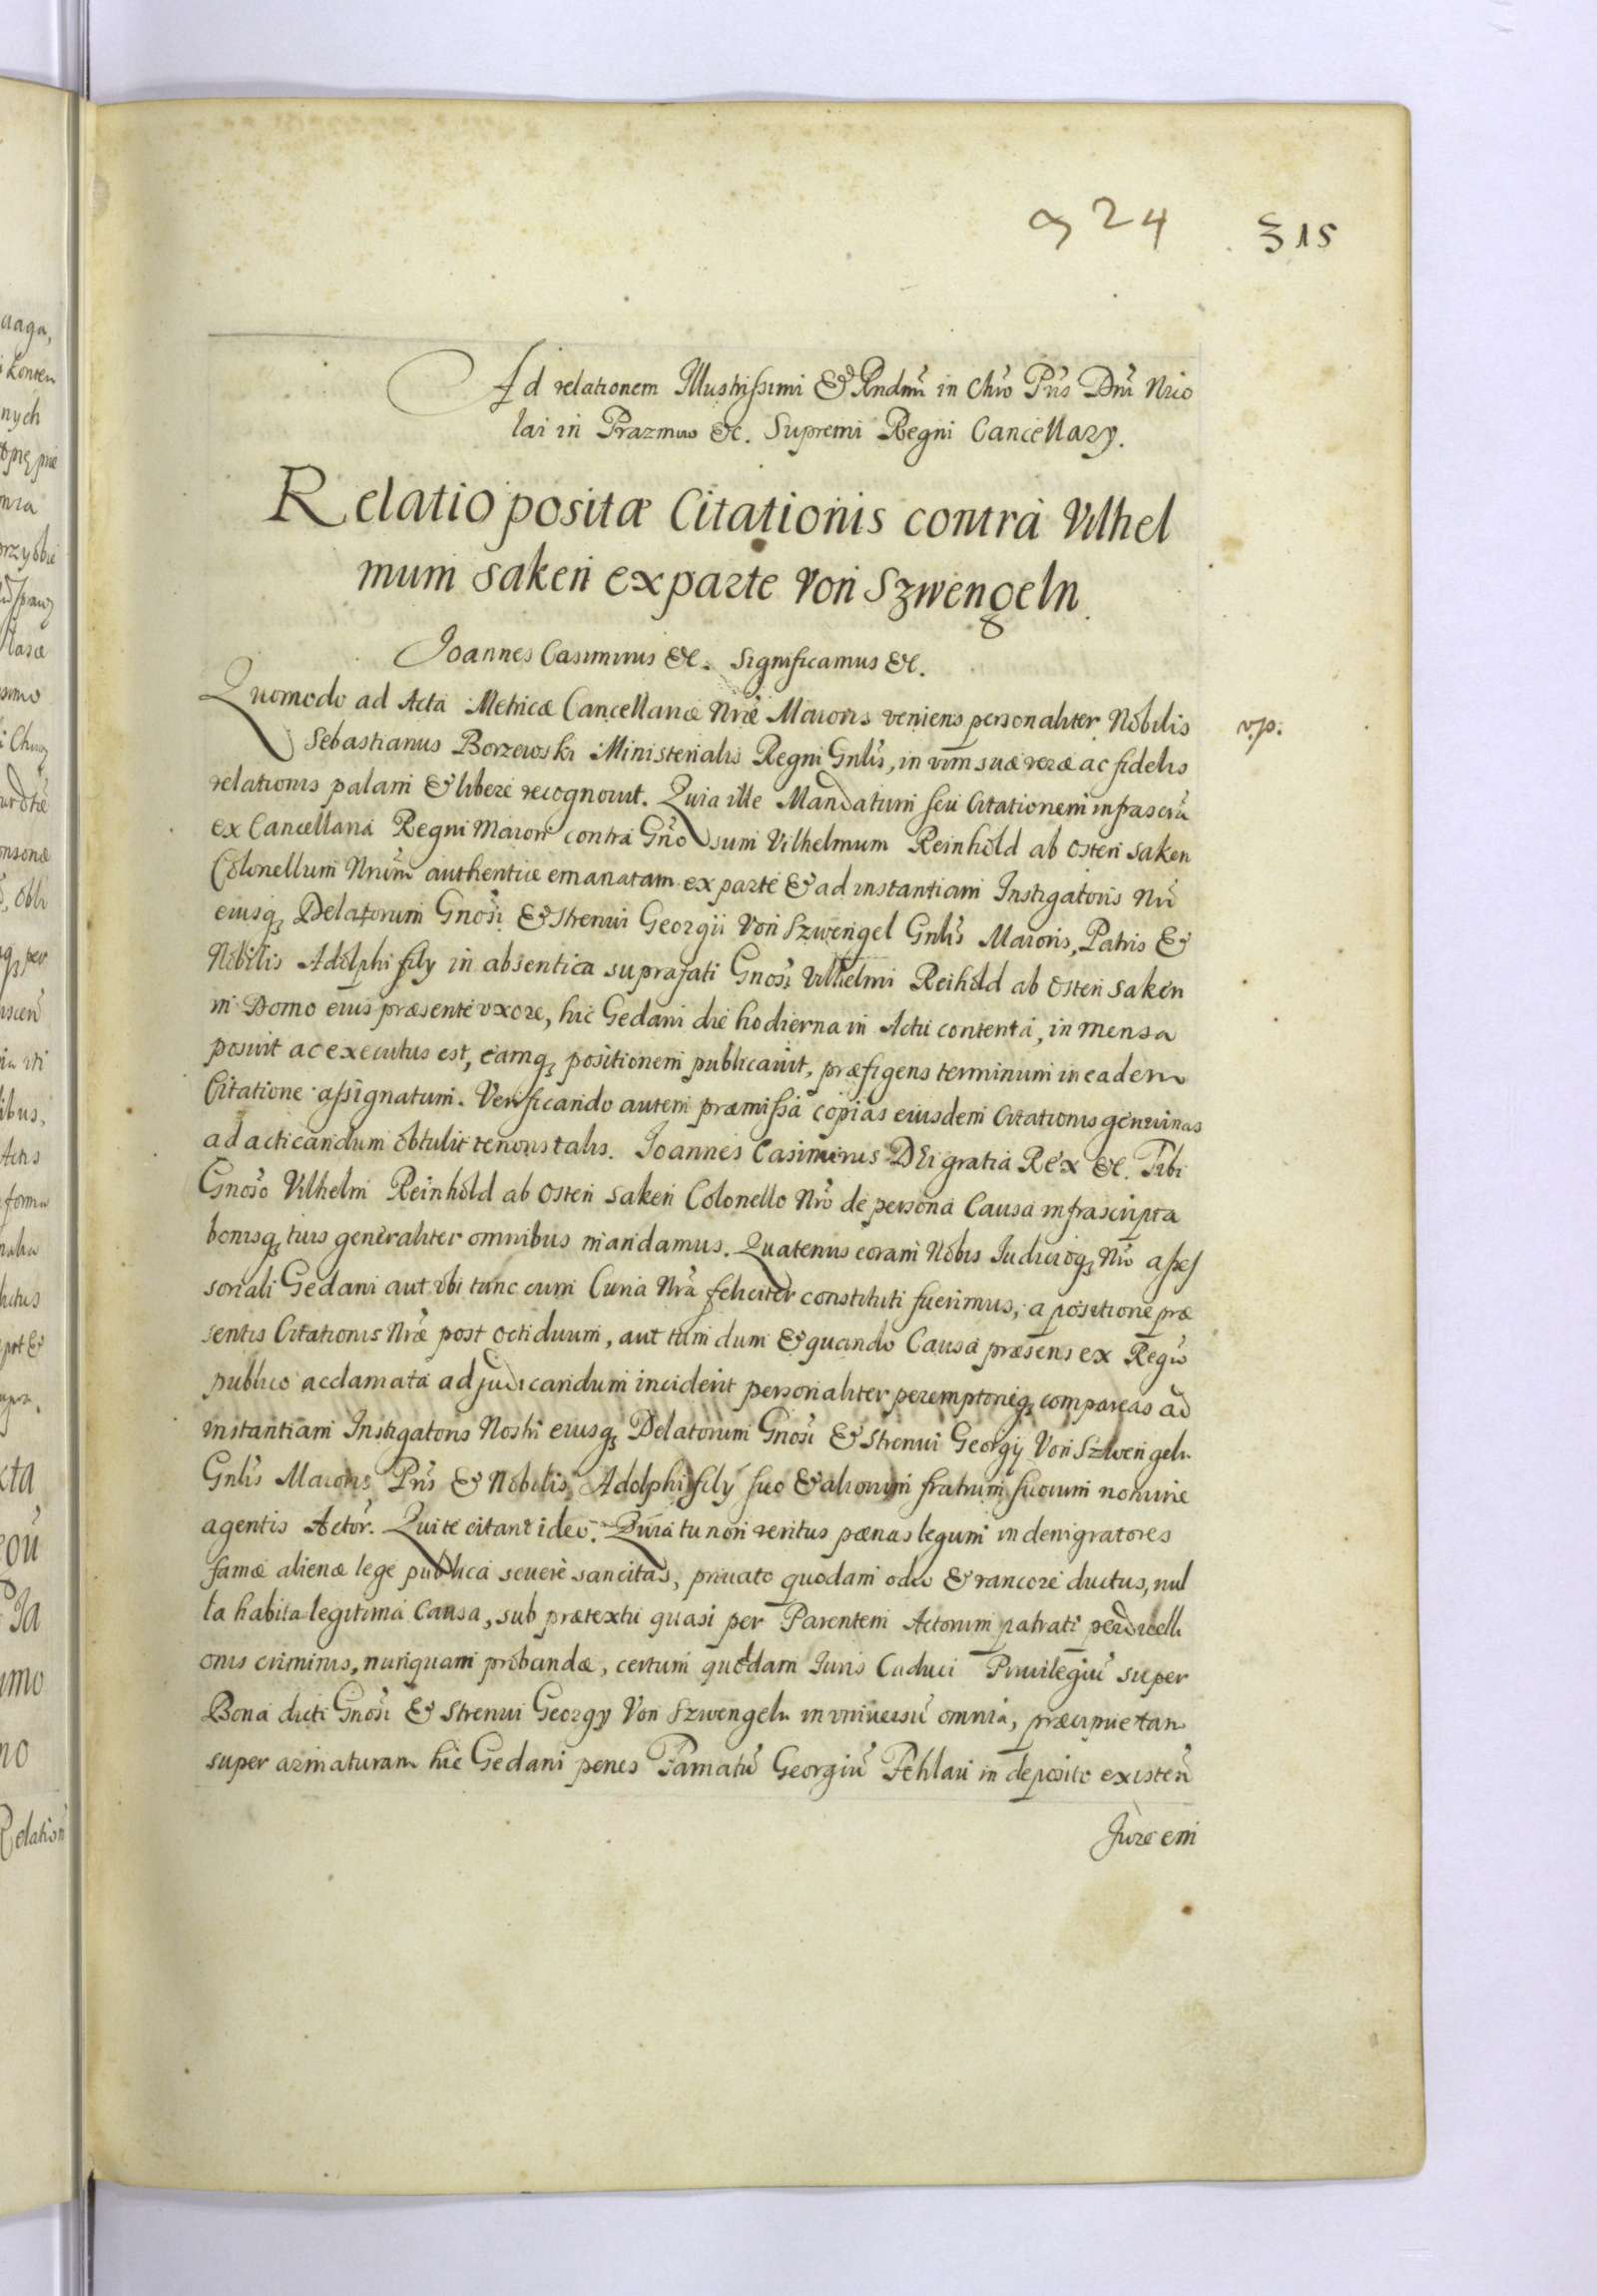 924 315
Ad relationem Illustrissimi & Rndmi in Chro Pris Dni Nico
lai in Prazmow &c. Supremi Regni Cancellary.
Relatio positæ Citationis contra Vilhel
mum saken ex parte Von Szwengeln
Joannes Casimirus &c. Significamus &c.
Quomodo ad Acta Metricæ Cancellariæ Nræ Maioris veniens personaliter Nobilis
v.p.
Sebastianus Borzewski Ministerialis Regni Gnlis, in vim suæ veræ ac fidelis
relationis palam & libere recognovit. Quia ille Mandatum seu Citationem infrascrm
ex Cancellaria Regni Maiori contra Gnosum Vilhelmum Reinhold ab Osten saken
Colonellum Nrum authentice emanatam ex parte & ad instantiam Instigatoris Nri
eiusq Delatorum Gnosi & Strenui Georgii Von Szwengel Gnlis Maioris, Patris &
Nobilis Adolphi fily in absentica suprafati Gnosi Vilhelmi Reihold ab Osten saken
in Domo eius præsente uxore, hic Gedani die hodierna in Actu contenta, in mensa
posuit ac executus est, eamq positionem publicavit, præfigens terminum in eadem
Citatione assignatum. Verificando autem præmissa copias eiusdem Citationis genuinas
ad acticandum obtulit tenoris talis. Joannes Casimirus DEi gratia Rex &c. Tibi
Gnoso Vilhelm Reinhold ab Osten saken Colonello Nro de persona Causa infrascripta
bonisq tuis generaliter omnibus mandamus. Quatenus coram Nobis Iudicioq Nro asses
soriali Gedani aut ubi tunc cum Curia Nra feliciter constituti fuerimus, a positione præ
sentis Citationis Nræ post octiduum, aut tum dum & quando Causa præsens ex Regro
publico acclamata ad judicandum inciderit personaliter peremptorieq compareas ad
instantiam Instigatoris Nostri eiusq Delatorum Gnosi & Strenui Georgy Von Szwengeln
Gnlis Maioris Pris & Nobilis Adolphi fily suo & aliorum fratrum suorum nomine
agentis Actor. Qui te citant ideo. Quia tu non veritus pænas legum in denigratores
famæ alienæ lege publica severe sancitas, privato quodam odio & rancore ductus, nul
la habita legitima Causa, sub prætextu quasi per Parentem Actorum patrati perduelli
onis criminis, nunquam probandæ, certum quodam Iuris Caduci Privilegiũ super
Bona dicti Gnosi & Strenui Georgy Von Szwengeln in universũ omnia, præcipue tam
super armaturam hic Gedani penes Famatũ Georgiũ Pehlau in deposito existen
Jure em